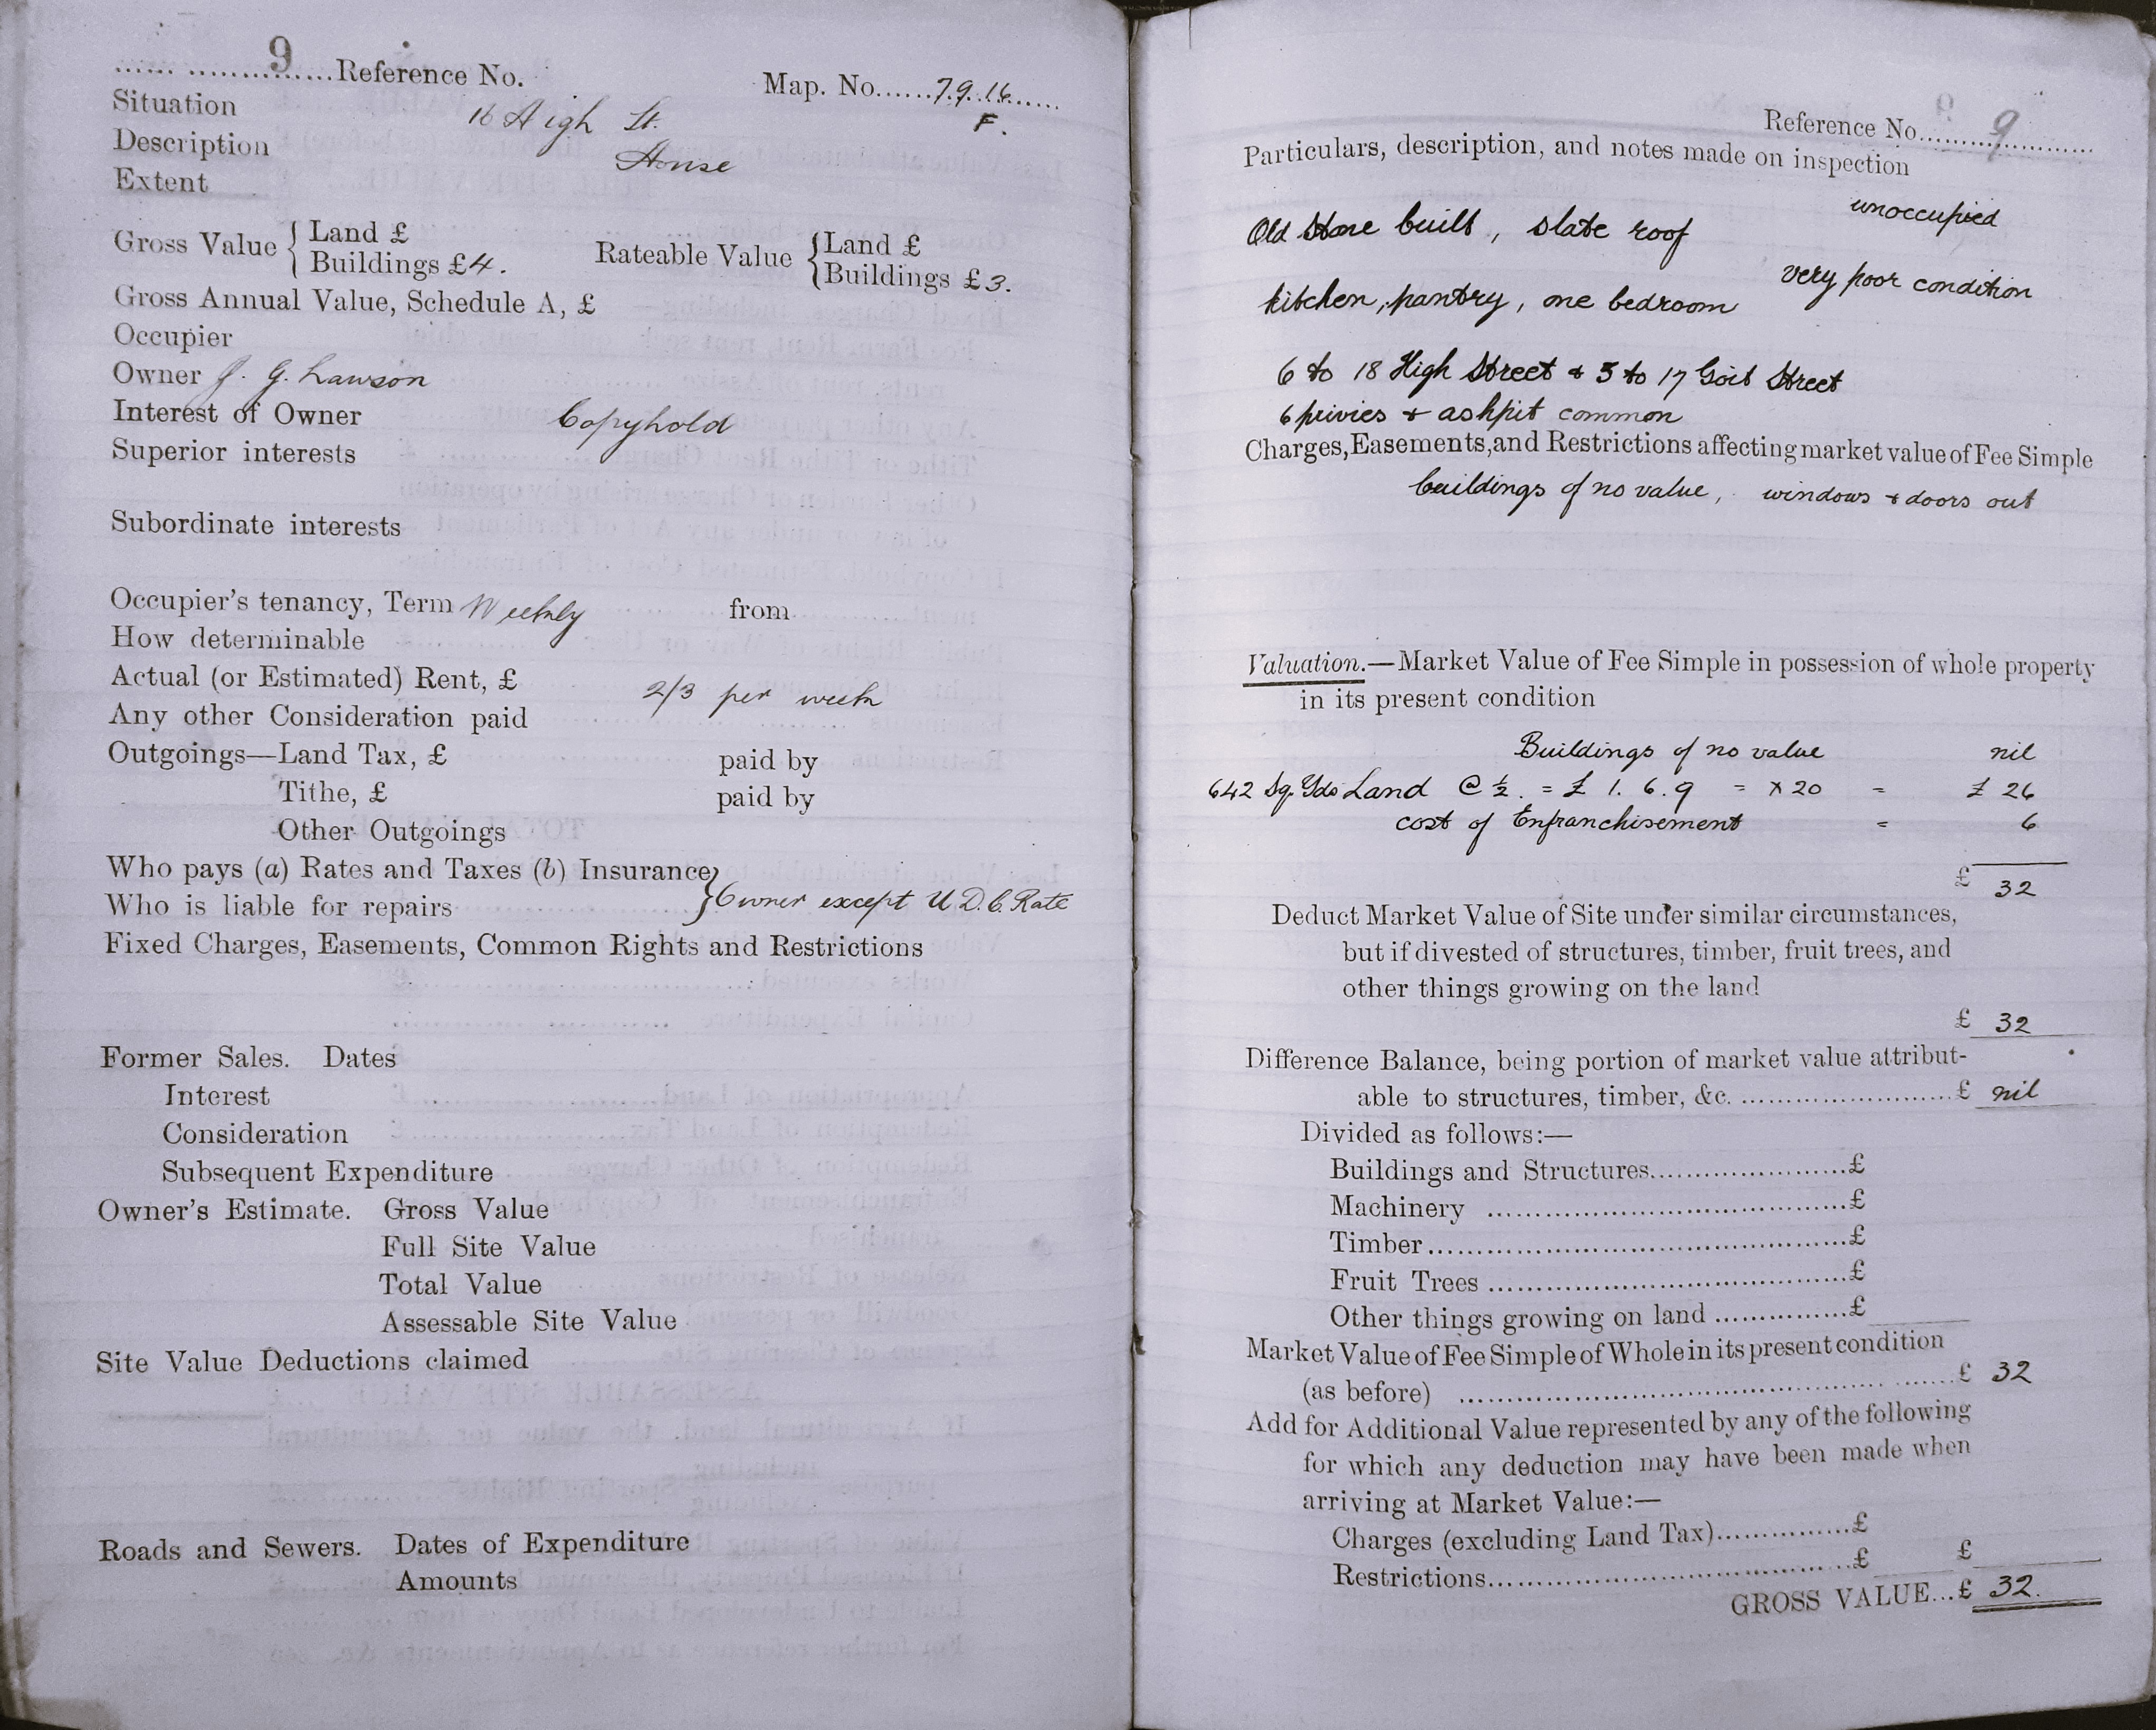 9 Reference No. Map. No......7.9.16......
Situation 16 High St. F.
Description House
Extent
Gross Value { Land £ Rateable Value { Land £
Buildings £4. Buildings £3.
Gross Annual Value, Schedule A, £
Occupier
Owner J. G. Lawson
Interest of Owner Copyhold
Superior interests
Subordinate interests
Occupier's tenancy, Term Weekly from
How determinable
Actual (or Estimated) Rent, £ 2/3 per week
Any other Consideration paid
Outgoings—Land Tax, £ paid by
Tithe, £ paid by
Other Outgoings
Who pays (a) Rates and Taxes (b) Insurance
Who is liable for repairs } Owner except U.D.C. Rate
Fixed Charges, Easements, Common Rights and Restrictions
Former Sales. Dates
Interest
Consideration
Subsequent Expenditure
Owner's Estimate. Gross Value
Full Site Value
Total Value
Assessable Site Value
Site Value Deductions claimed
Roads and Sewers. Dates of Expenditure
Amounts
Reference No. 9
Particulars, description, and notes made on inspection
unoccupied
Old Stone built, slate roof
very poor condition
kitchen, pantry, one bedroom
6 to 18 High Street & 3 to 17 Goit Street
6 privies & ashpit common
Charges, Easements, and Restrictions affecting market value of Fee Simple
buildings of no value, windows & doors out
Valuation.—Market Value of Fee Simple in possession of whole property
in its present condition
Buildings of no value nil
642 Sq. Yds Land @ ½. = £ 1. 6. 9 = × 20 = £ 26
cost of Enfranchisement = 6
£ 32
Deduct Market Value of Site under similar circumstances,
but if divested of structures, timber, fruit trees, and
other things growing on the land
£ 32
Difference Balance, being portion of market value attribut-
able to structures, timber, &c. ........................£ nil
Divided as follows:—
Buildings and Structures......................£
Machinery ......................................£
Timber............................................£
Fruit Trees .....................................£
Other things growing on land ...............£
Market Value of Fee Simple of Whole in its present condition
(as before) ..............................................£ 32
Add for Additional Value represented by any of the following
for which any deduction may have been made when
arriving at Market Value:—
Charges (excluding Land Tax)...............£
Restrictions.....................................£ £
GROSS VALUE...£ 32.